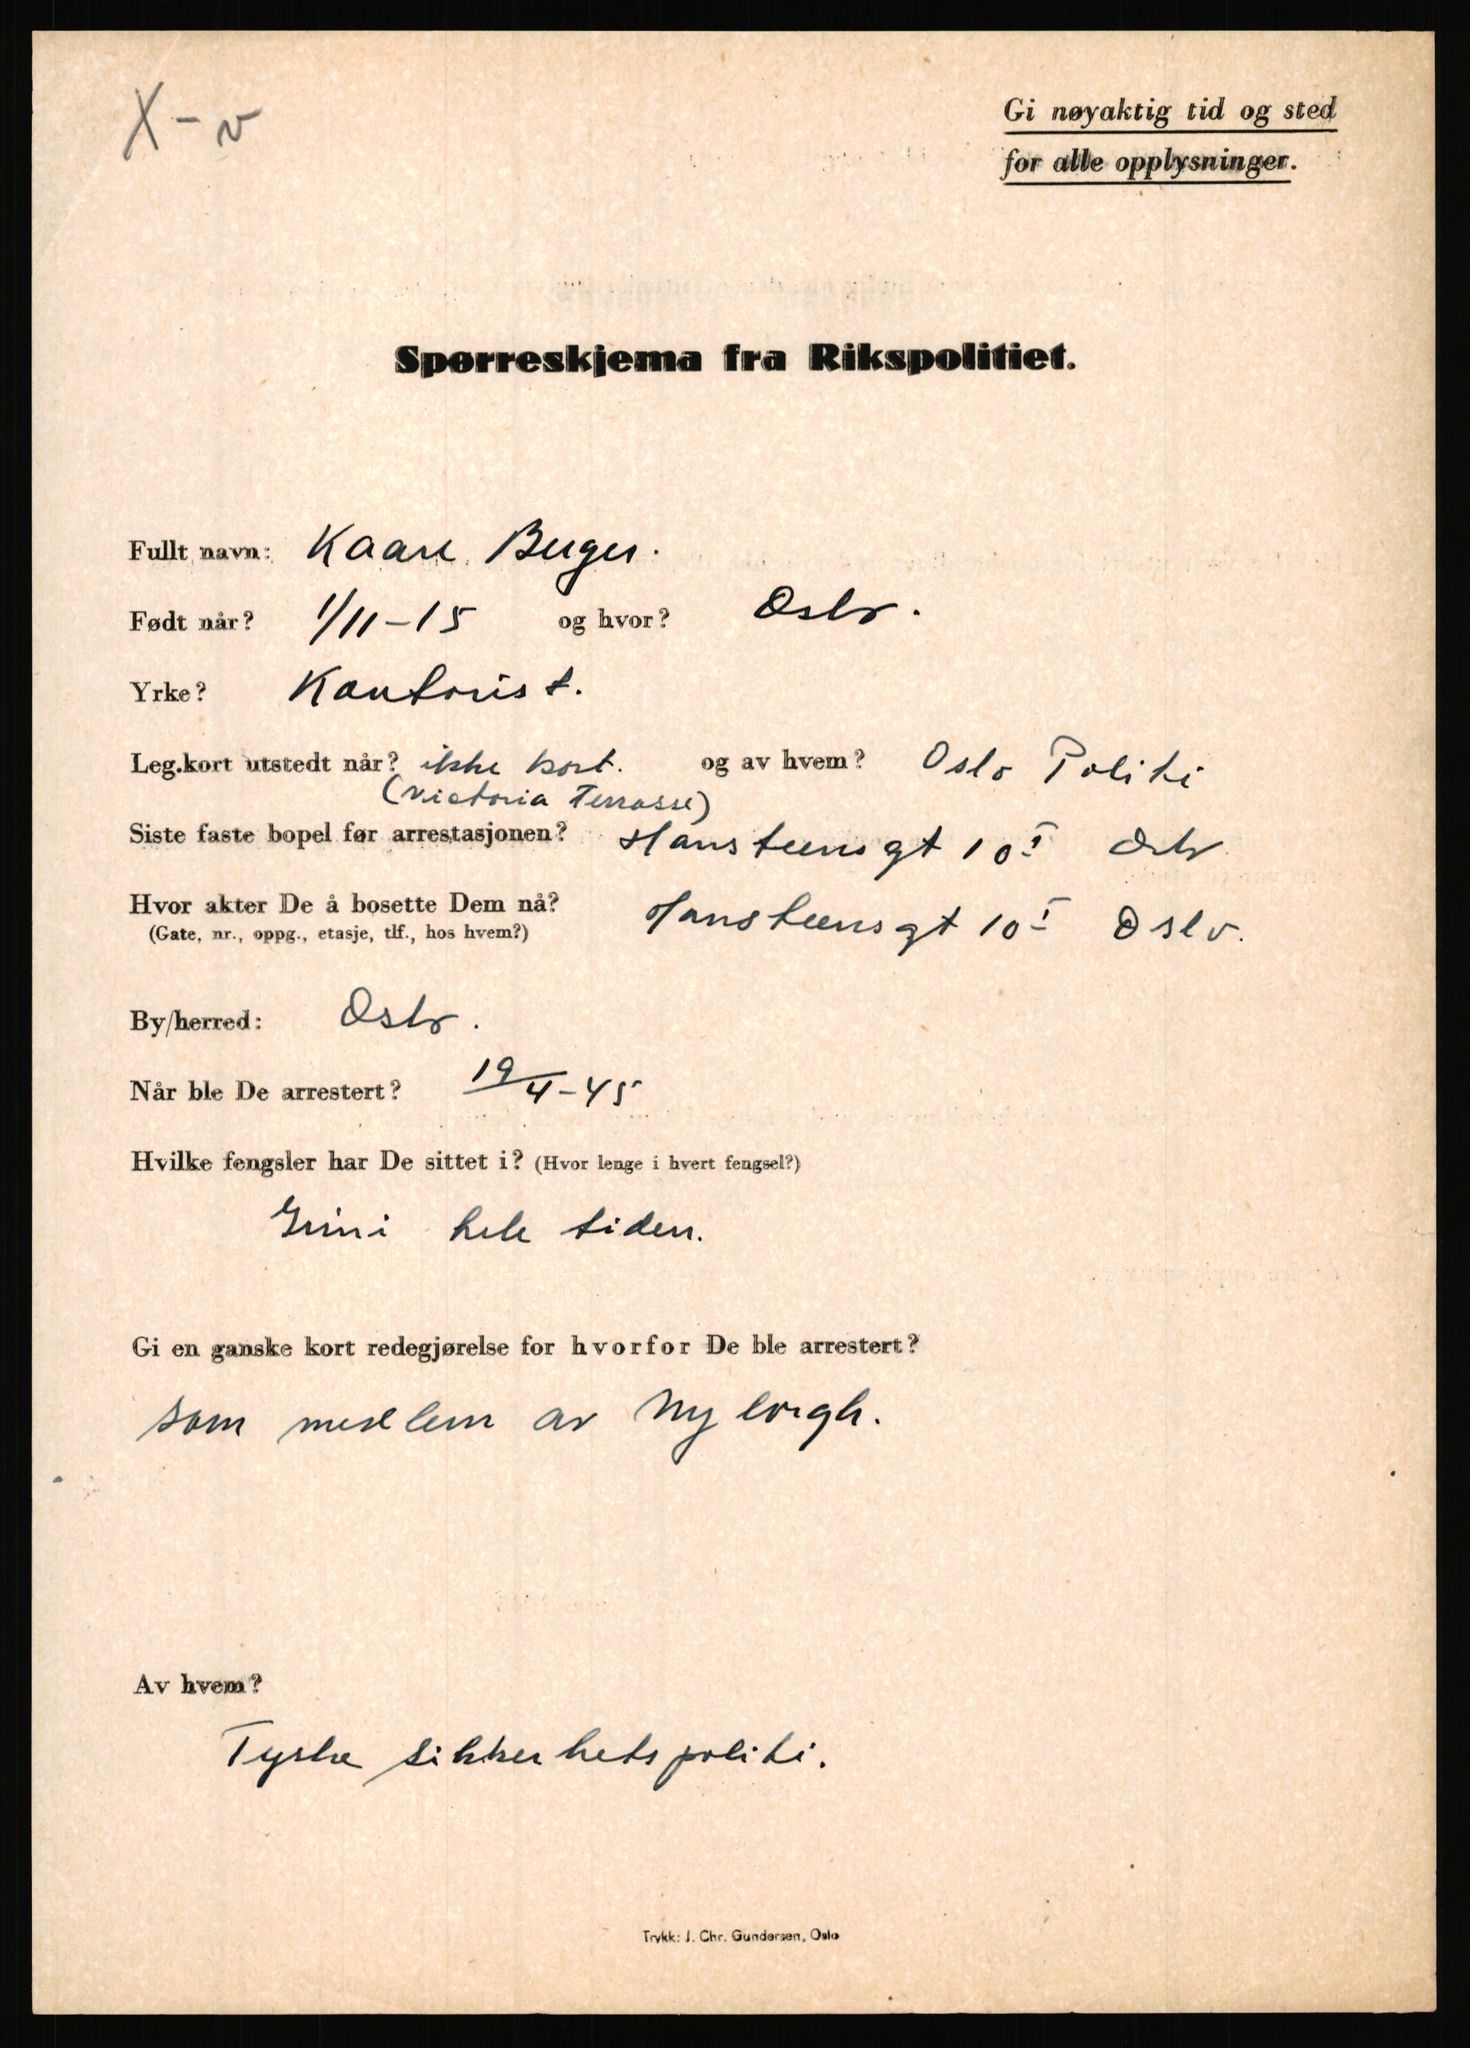 X - v
Gi nøyaktig tid og sted
for alle opplysninger.
Spørreskjema fra Rikspolitiet.
Fullt navn: Kaare Berger.
Født når? 1/11-15 og hvor? Oslo.
Yrke? Kontorist.
Leg.kort utstedt når? ikke kort. og av hvem? Oslo Politi
(Victoria Terrasse)
Siste faste bopel før arrestasjonen? Hansteensgt 10 I Oslo
Hvor akter De å bosette Dem nå? Hansteensgt 10 I Oslo.
(Gate, nr., oppg., etasje, tlf., hos hvem?)
By/herred: Oslo.
Når ble De arrestert? 19/4-45
Hvilke fengsler har De sittet i? (Hvor lenge i hvert fengsel?)
Grini hele tiden.
Gi en ganske kort redegjørelse for hvorfor De ble arrestert?
som medlem av Ny
Av hvem?
Tyske sikkerhetspoliti.
Trykk: J. Chr. Gundersen, Oslo